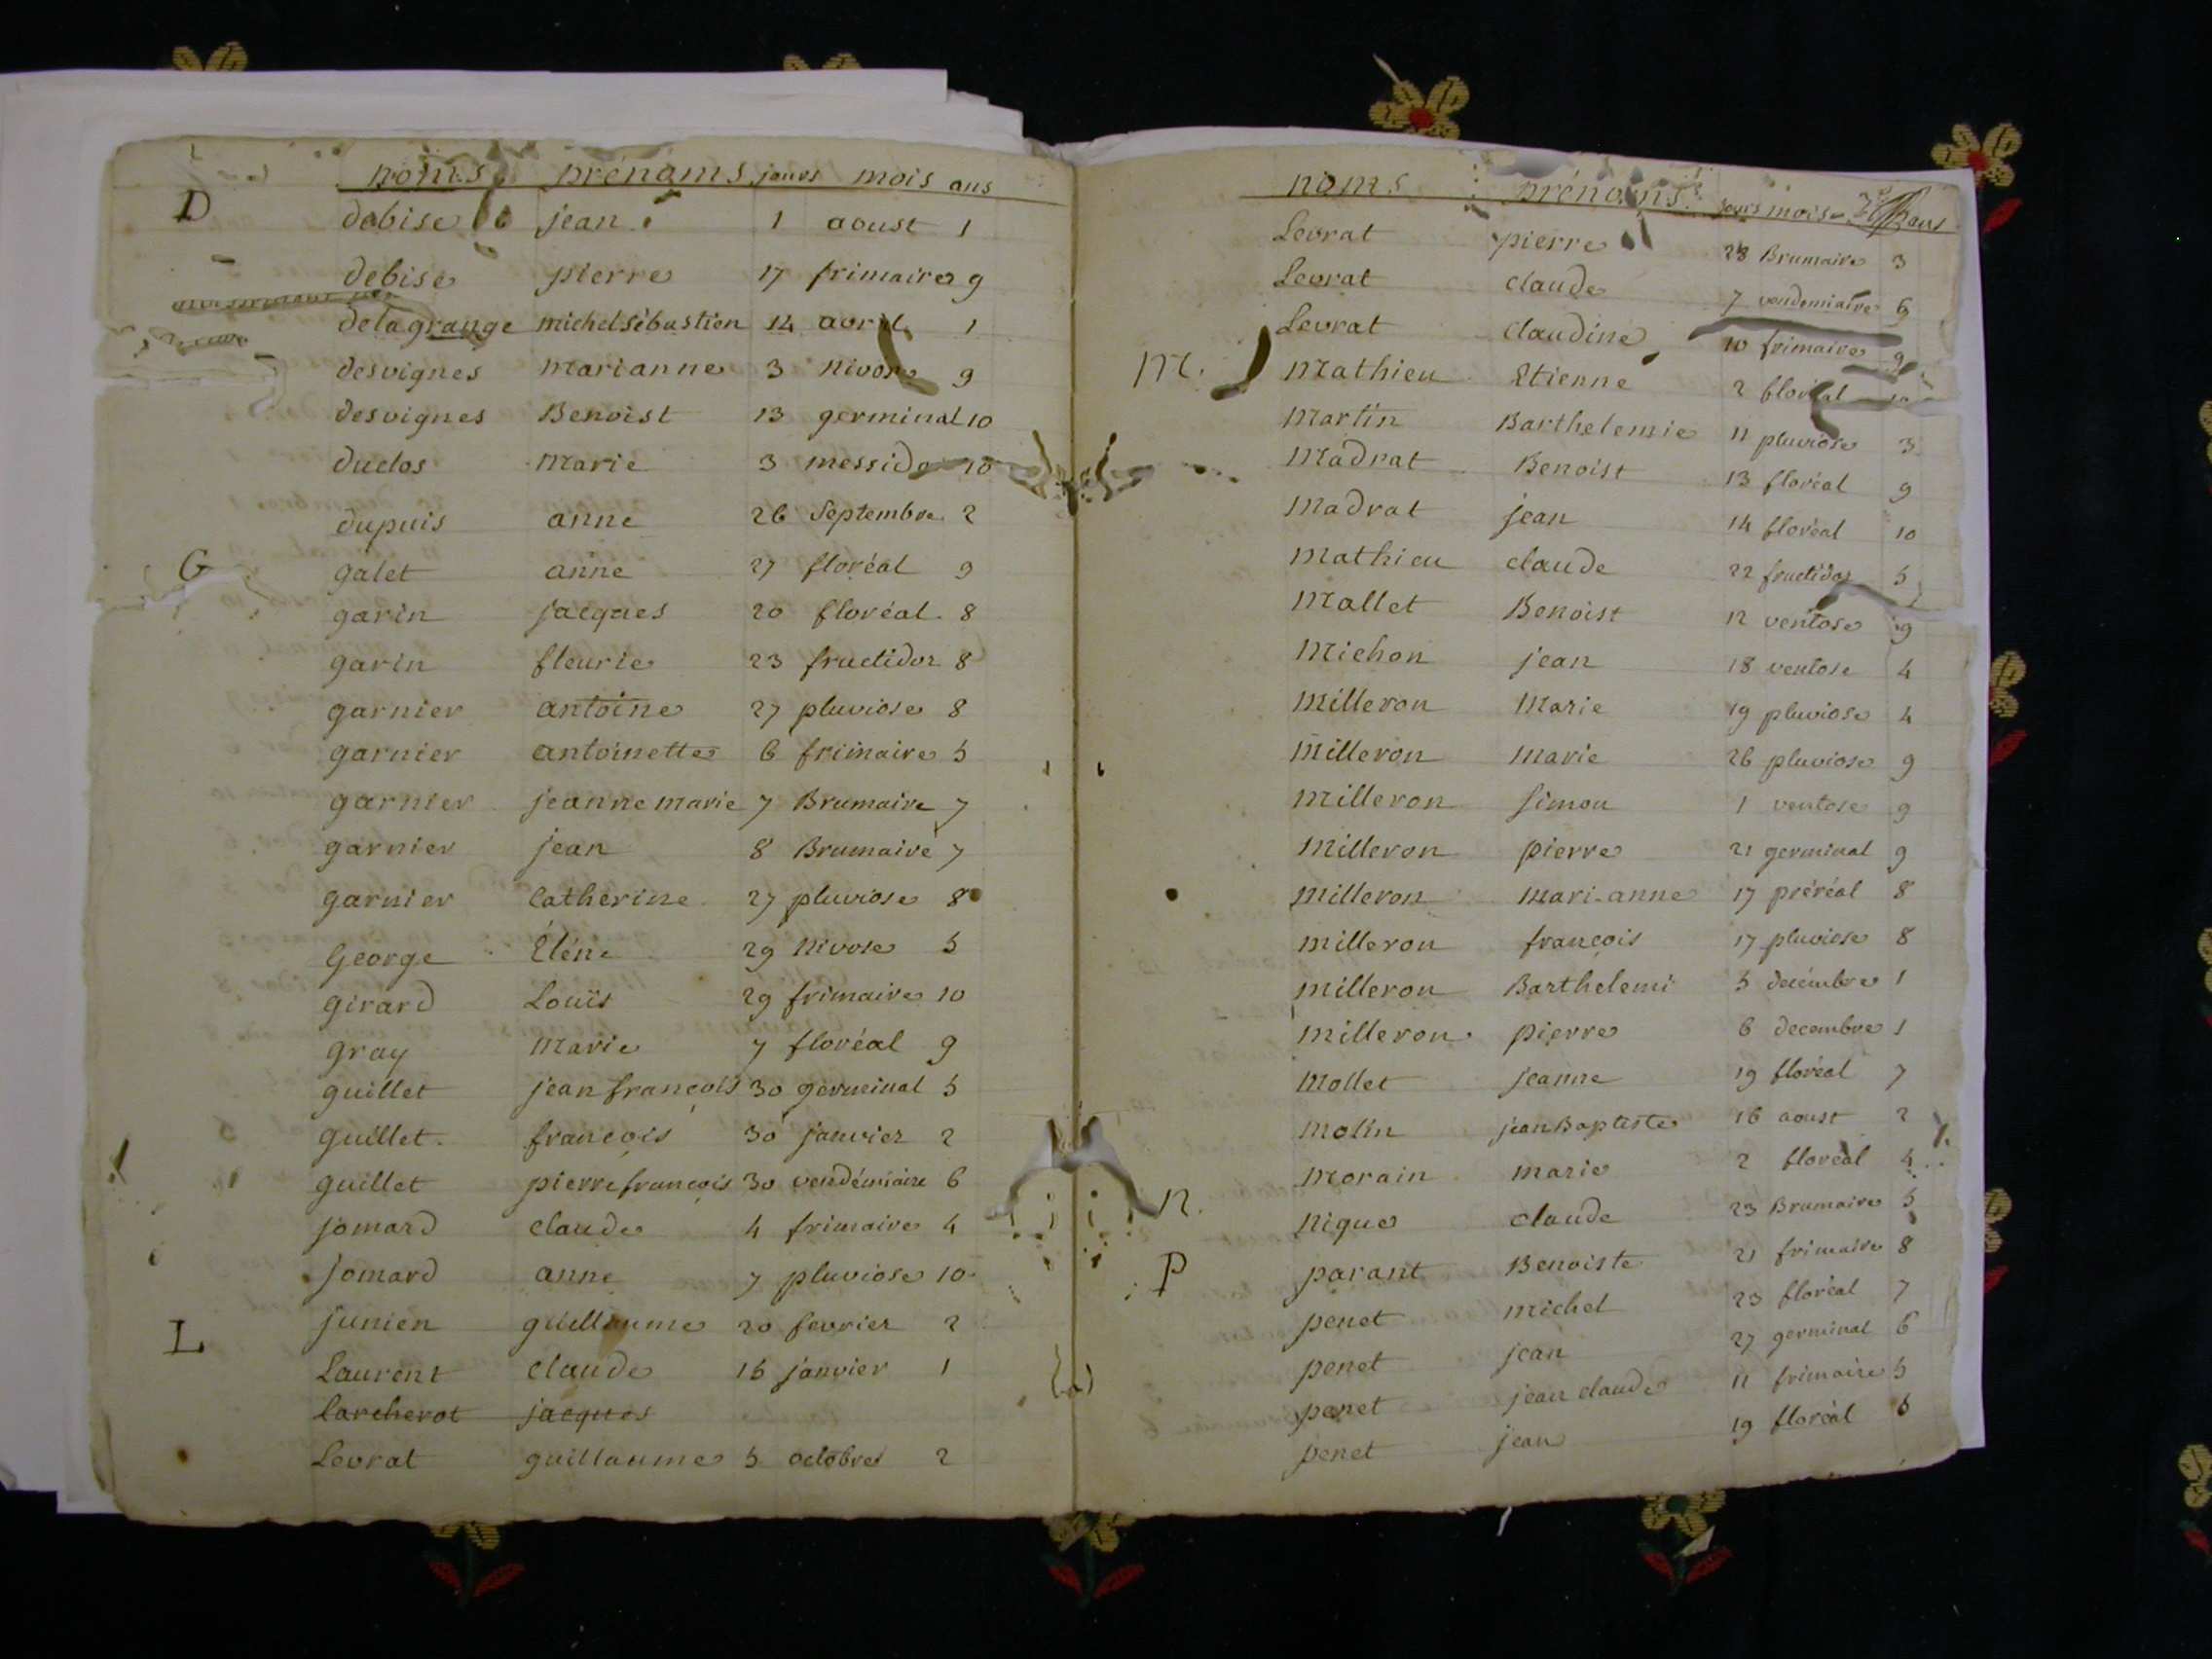 noms prénoms jours mois ans
D
debise jean 1 aoust 1
debise pierre 17 frimaire 9
delagrange michel sébastien 14 avril 1
desvignes marianne 3 nivose 9
desvignes Benoist 13 germinal 10
duclos marie 3 messidor 10
dupuis anne 26 Septembre 2
G
galet anne 27 floréal 9
garin jacques 20 floréal 8
garin fleurie 23 fructidor 8
garnier antoine 27 pluviose 8
garnier antoinette 6 frimaire 5
garnier jeanne marie 7 Brumaire 7
garnier jean 8 Brumaire 7
garnier Catherine 27 pluviose 8
George Eléne 29 nivose 5
girard Louïs 29 frimaire 10
gray marie 7 floréal 9
guillet jean françois 30 germinal 5
guillet françois 30 janvier 2
guillet pierre françois 30 vendémiaire 6
jomard claude 4 frimaire 4
jomard anne 7 pluviose 10
junien guillaume 20 fevrier 2
L
Laurent claude 15 janvier 1
Larcherot jacques
Levrat guillaume 5 octobre 2
noms prénoms jours mois ans
Levrat pierre 28 Brumaire 3
Levrat claude 7 vendemiaire 6
Levrat claudine 10 frimaire 9
M.
Mathieu Etienne 2 floréal
Martin Barthelemie 11 pluviose 3
Madrat Benoist 13 floréal 9
Madrat jean 14 floréal 10
Mathieu claude 22 fructidor 5
Mallet Benoist 12 ventose 9
Michon jean 18 ventose 4
Milleron Marie 19 pluviose 4
Milleron marie 26 pluviose 9
Milleron Simon 1 ventose 9
Milleron pierre 21 germinal 9
milleron mari-anne 17 préréal 8
milleron françois 17 pluviose 8
milleron Barthelemi 5 decembre 1
milleron pierre 6 decembre 1
Mollet jeanne 19 floréal 7
Molin jean Baptiste 16 aoust 2
Morain marie 2 floréal 4
N.
nique claude 23 Brumaire 5
P
parant Benoiste 21 frimaire 8
penet michel 23 floréal 7
penet jean 27 germinal 6
penet jean claude 11 frimaire 5
penet jean 19 floréal 6